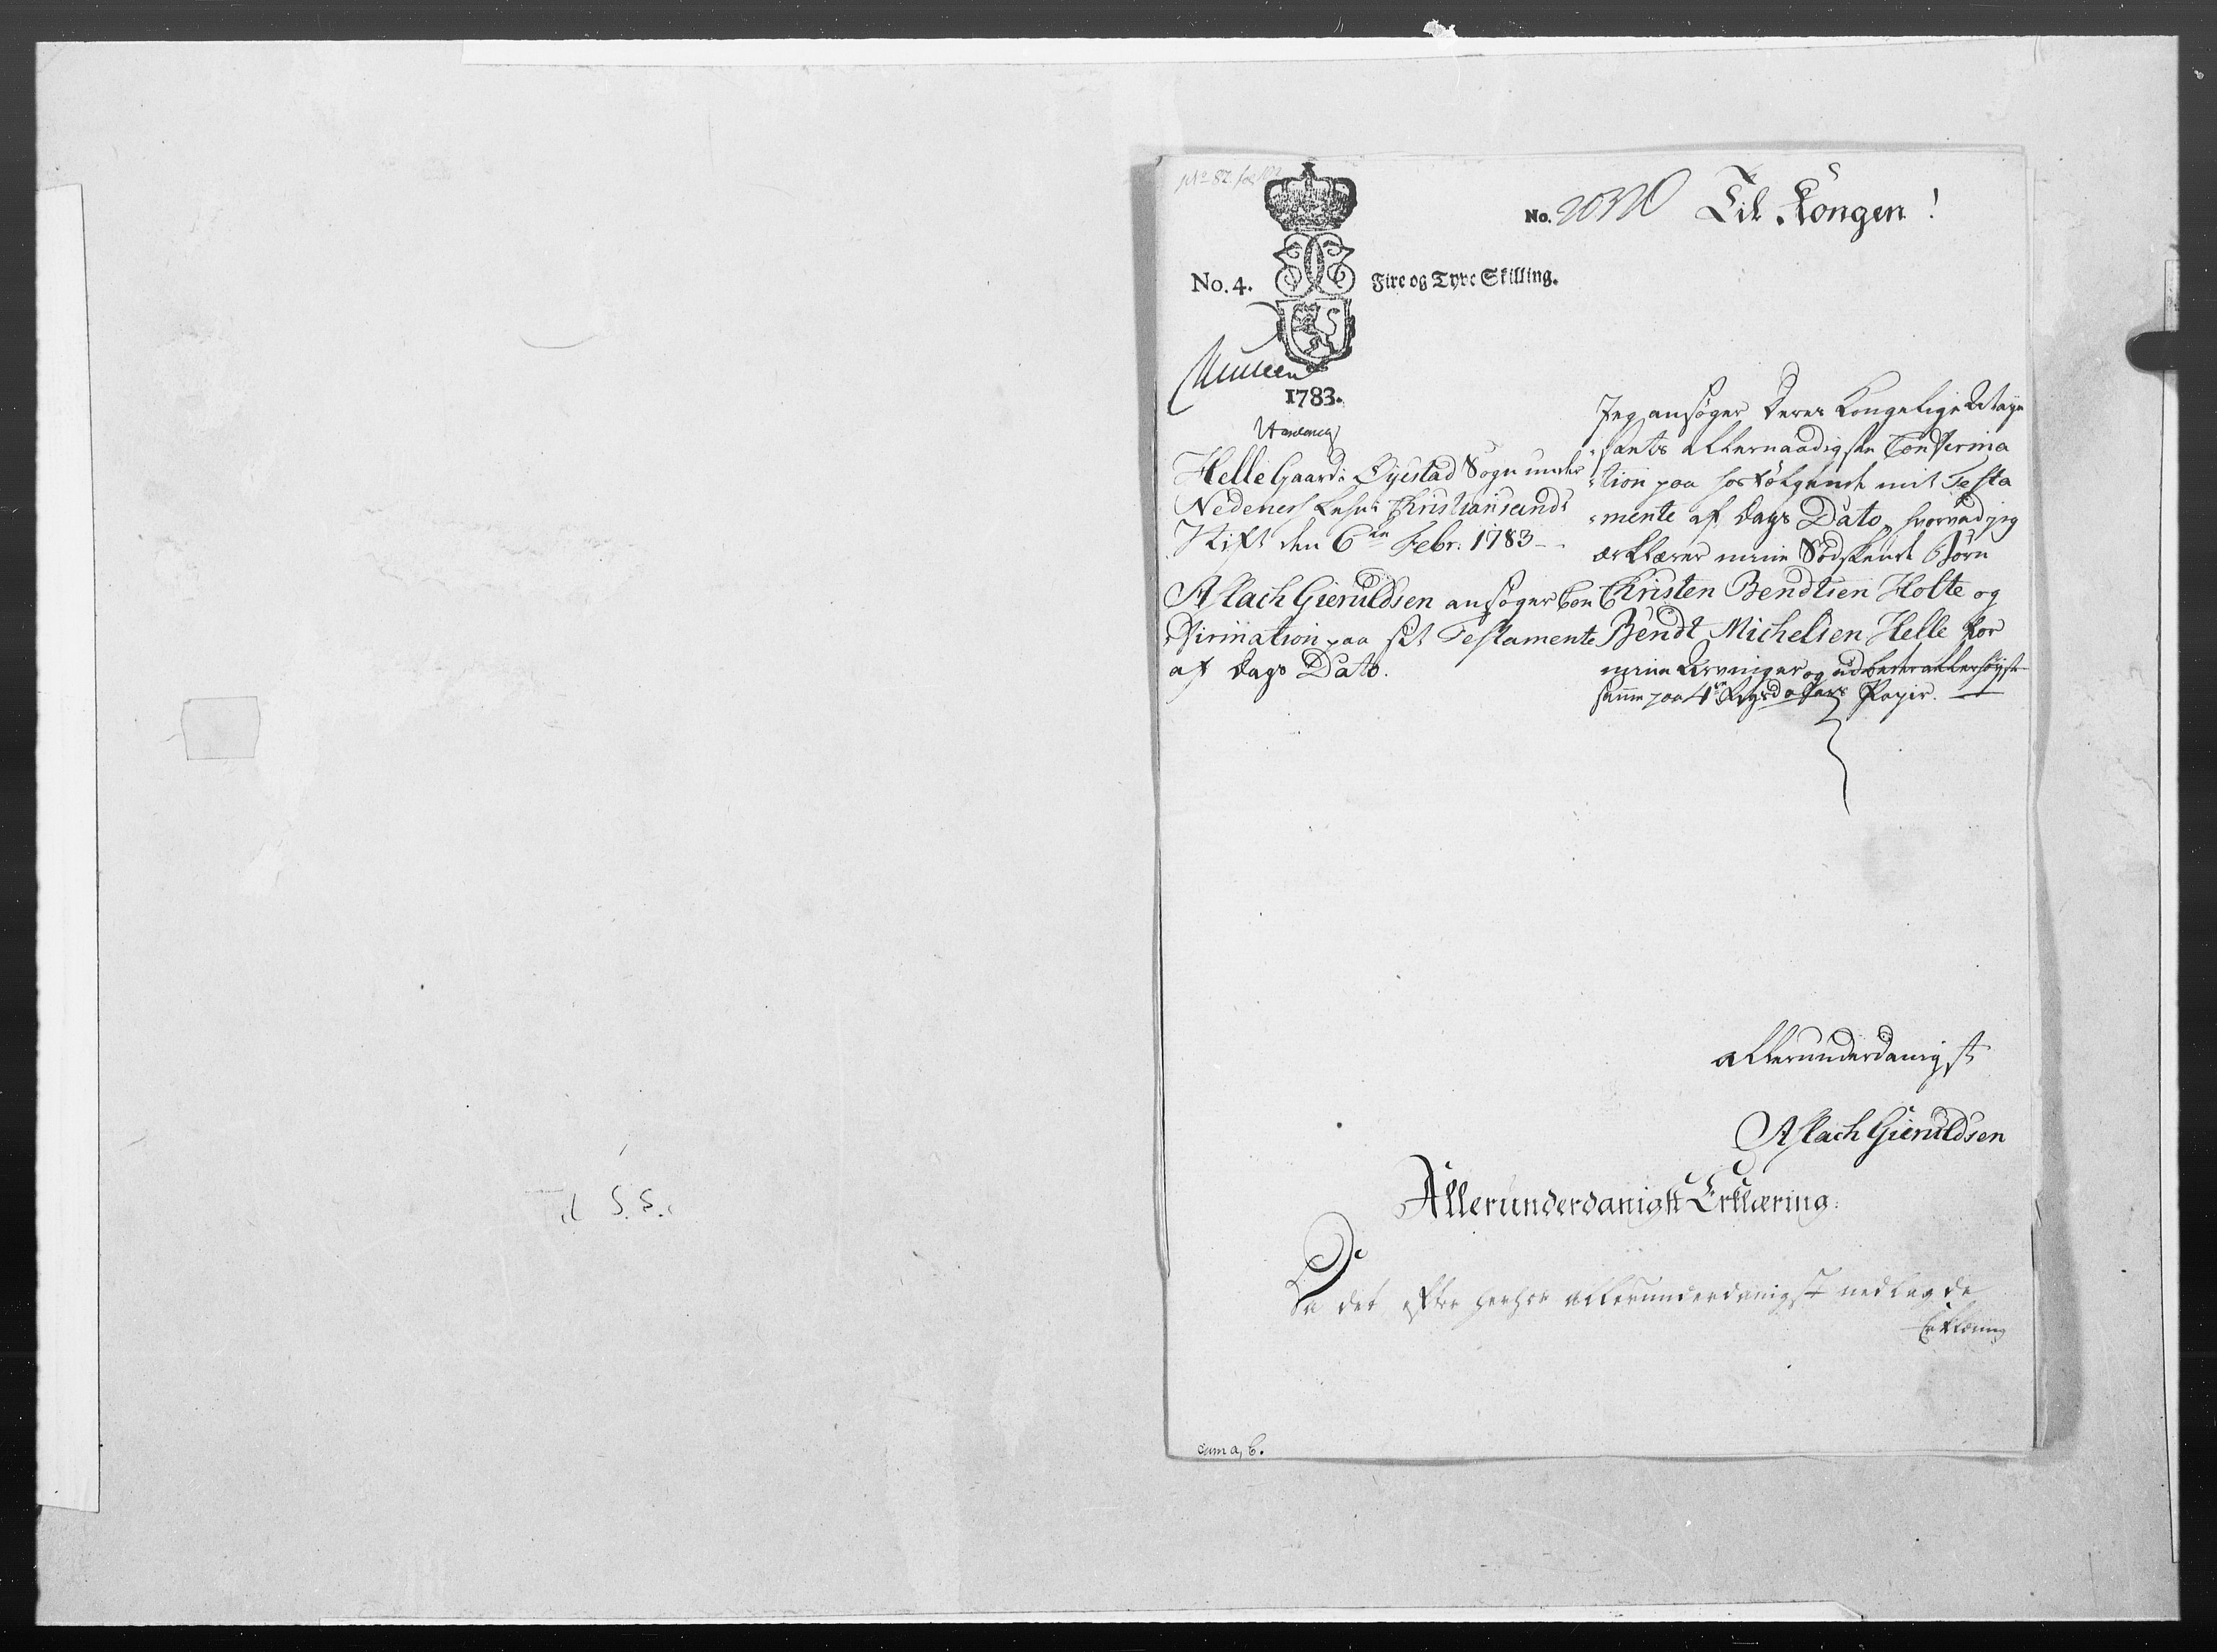 No. 82.
No. 20320
Til Kongen!
No. 4.
Fire og Tyve Skilling.
1783.
Helle Gaard i Øjestad Sogn under
Nedenes Lehn i Christiansands
Stift den 6te Febr. 1783
Aslach Gieruldsen ansøger Con
firmation paa sit Testamente
af Dags Dato.
Jeg ansøger Deres Kongelige Maje
stæts allernaadigste Confirma
tion paa hosfølgende mit Testa
mente af Dags Dato, hvorved jeg
erklærer mine Sødskende Børn
Christen Bendtsen Holte og
Bendt Michelsen Helle for
mine Arvinger og udbeder allerhøyst
samme paa 4re Rigsdalers Papir.
allerunderdanigst
Aslach Gieruldsen
Allerunderdanigst Erklæring:
Da det efter herhos allerunderdanigst nedlagde
Erklæring
cum a, b.